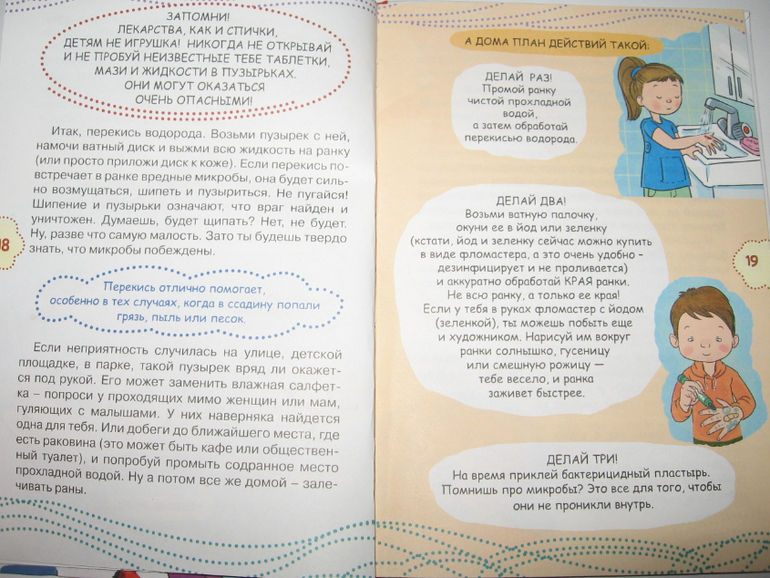 ЗАПОМНИ!
ЛЕКАРСТВА, КАК И СПИЧКИ,
ДЕТЯМ НЕ ИГРУШКА! НИКОГДА НЕ ОТКРЫВАЙ
И НЕ ПРОБУЙ НЕИЗВЕСТНЫЕ ТЕБЕ ТАБЛЕТКИ,
МАЗИ И ЖИДКОСТИ В ПУЗЫРЬКАХ.
ОНИ МОГУТ ОКАЗАТЬСЯ
ОЧЕНЬ ОПАСНЫМИ!
Итак, перекись водорода. Возьми пузырек с ней,
намочи ватный диск и выжми всю жидкость на ранку
(или просто приложи диск к коже). Если перекись по-
встречает в ранке вредные микробы, она будет силь-
но возмущаться, шипеть и пузыриться. Не пугайся!
Шипение и пузырьки означают, что враг найден и
уничтожен. Думаешь, будет щипать? Нет, не будет.
Ну, разве что самую малость. Зато ты будешь твердо
знать, что микробы побеждены.
Перекись отлично помогает,
особенно в тех случаях, когда в ссадину попали
грязь, пыль или песок.
Если неприятность случилась на улице, детской
площадке, в парке, такой пузырек вряд ли окажет-
ся под рукой. Его может заменить влажная салфет-
ка – попроси у проходящих мимо женщин или мам,
гуляющих с малышами. У них наверняка найдется
одна для тебя. Или добеги до ближайшего места, где
есть раковина (это может быть кафе или обществен-
ный туалет), и попробуй промыть содранное место
прохладной водой. Ну а потом все же домой – зале-
чивать раны.
18
А ДОМА ПЛАН ДЕЙСТВИЙ ТАКОЙ:
ДЕЛАЙ РАЗ!
Промой ранку
чистой прохладной
водой,
а затем обработай
перекисью водорода.
ДЕЛАЙ ДВА!
Возьми ватную палочку,
окуни ее в йод или зеленку
(кстати, йод и зеленку сейчас можно купить
в виде фломастера, а это очень удобно –
дезинфицирует и не проливается)
и аккуратно обработай КРАЯ ранки.
Не всю ранку, а только ее края!
Если у тебя в руках фломастер с йодом
(зеленкой), ты можешь побыть еще
и художником. Нарисуй им вокруг
ранки солнышко, гусеницу
или смешную рожицу —
тебе весело, и ранка
заживет быстрее.
19
ДЕЛАЙ ТРИ!
На время приклей бактерицидный пластырь.
Помнишь про микробы? Это все для того, чтобы
они не проникли внутрь.